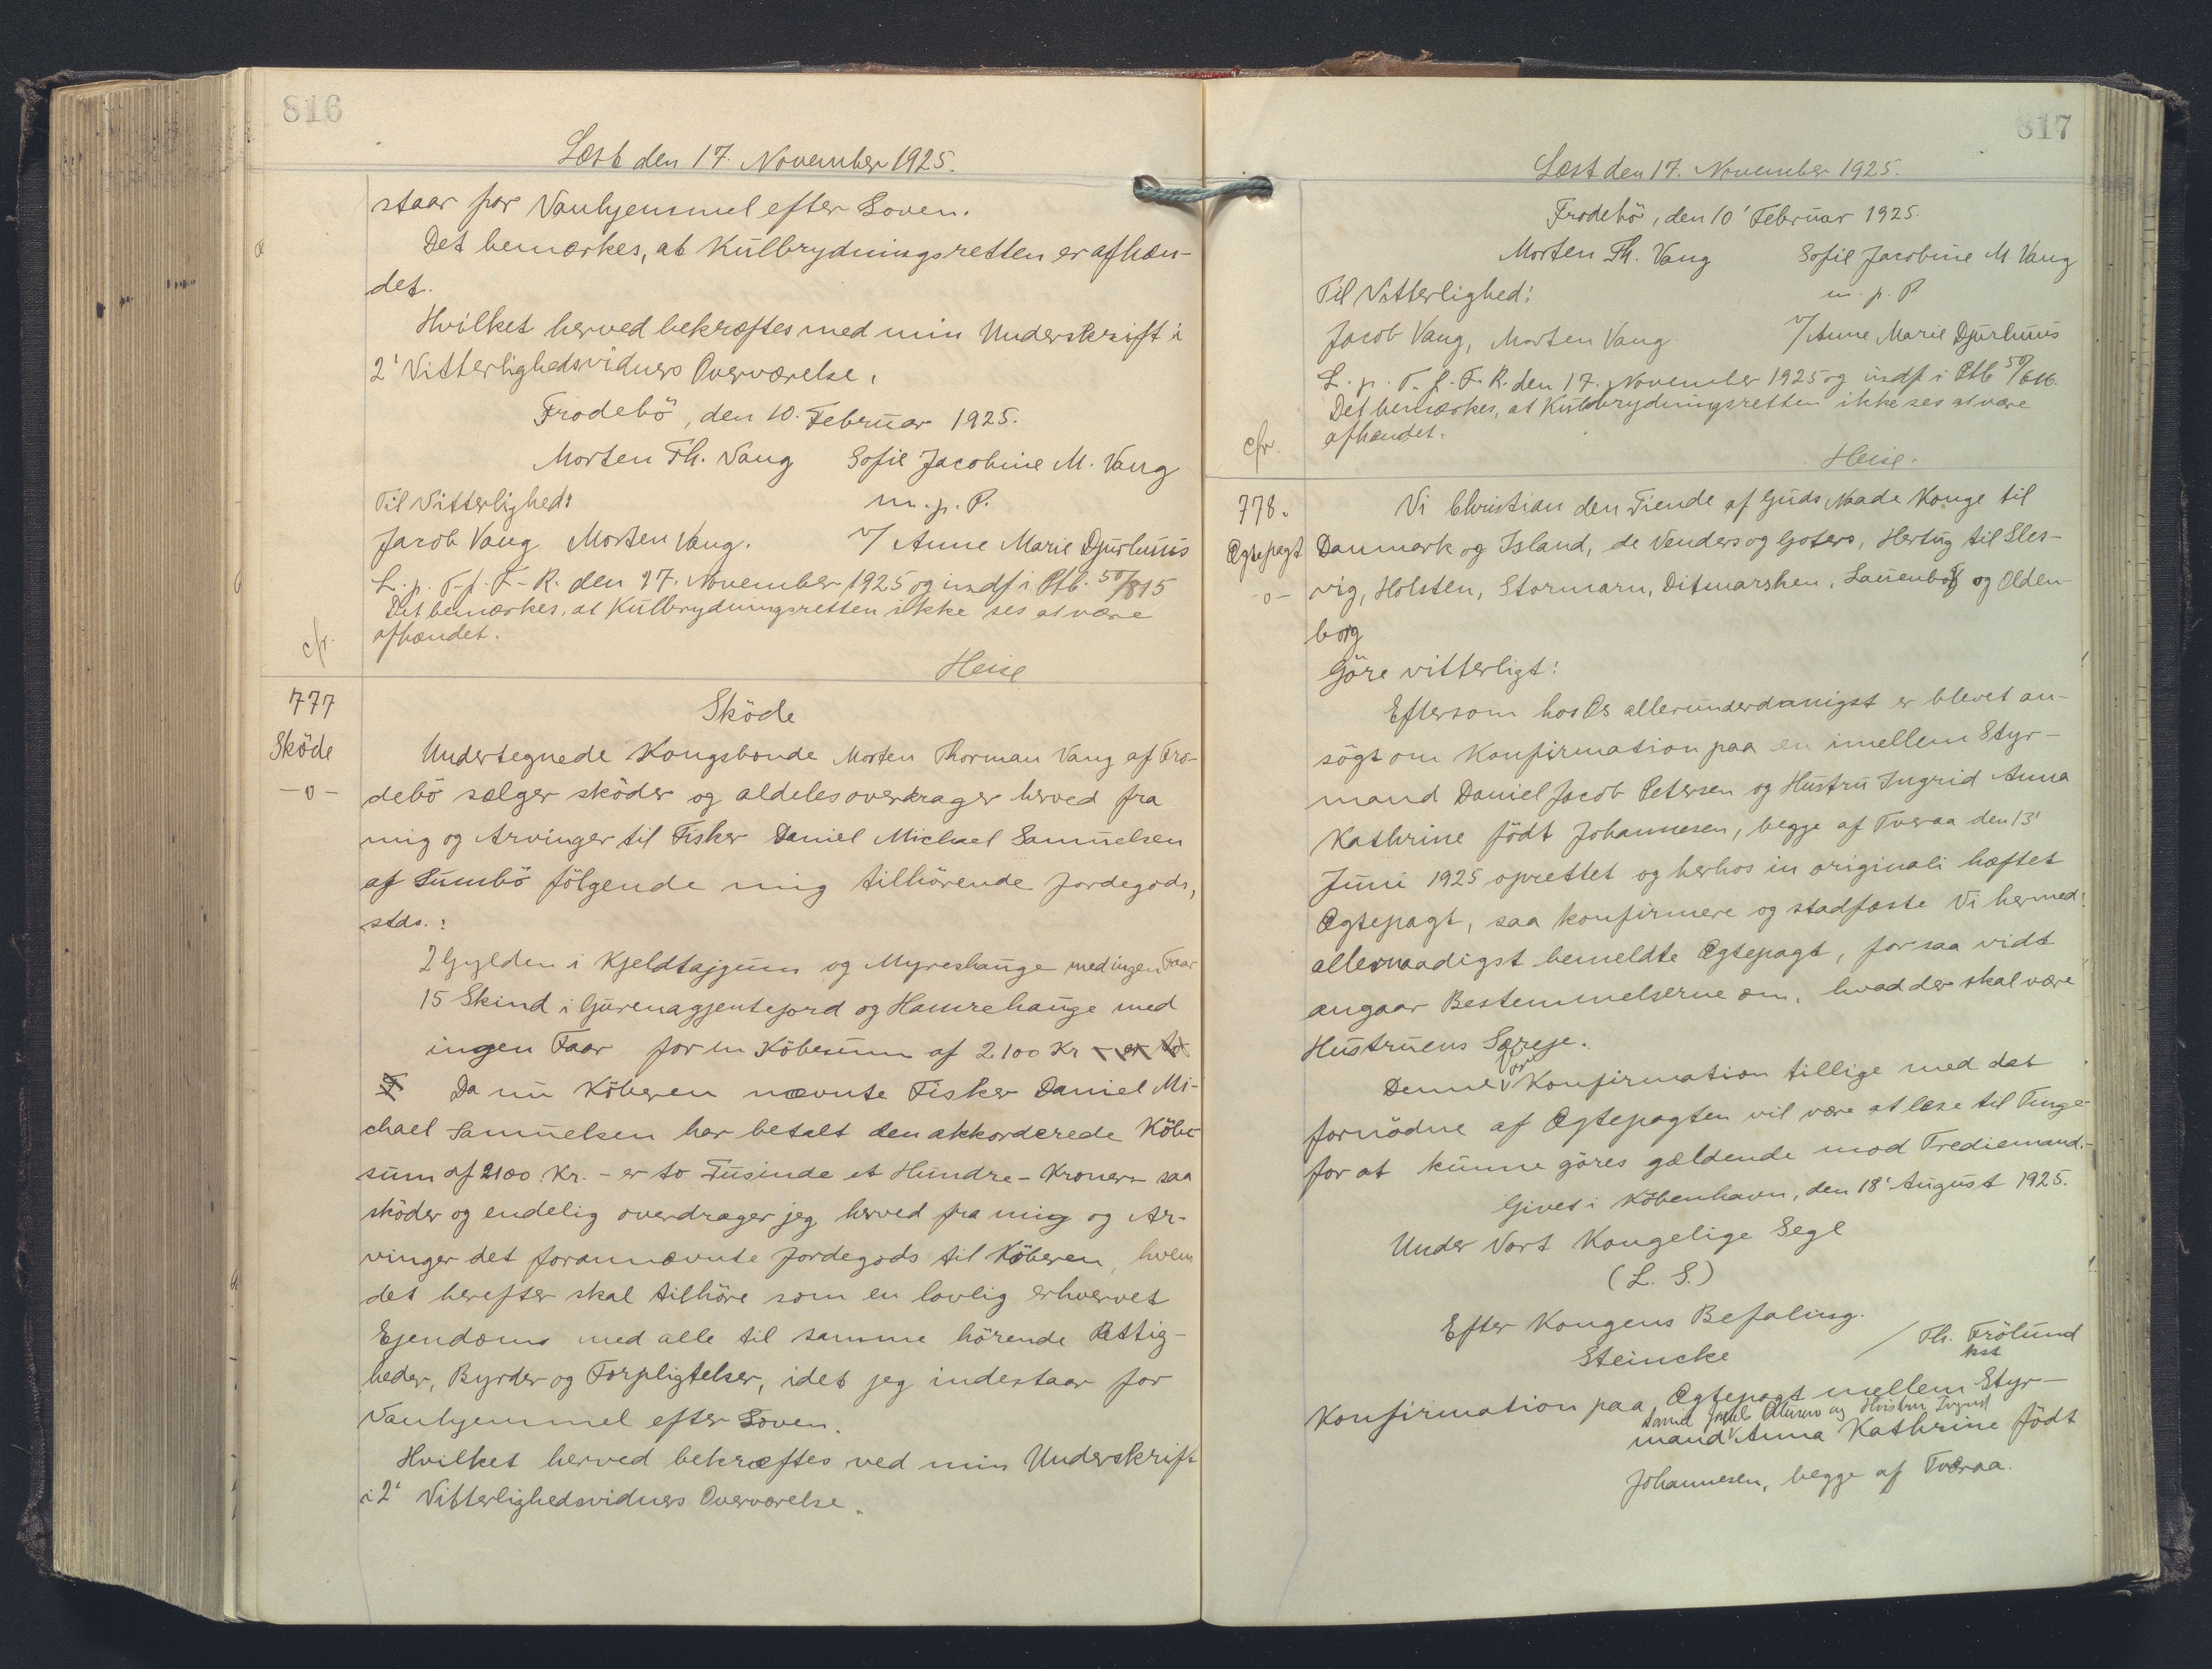 816
Læst den 17. November 1925.
staar for Vanhjemmel efter Loven.
Det bemærkes, at Kulbrydningsretten er afhæn-
det.
Hvilket herved bekræftes med min Underskrift i
2' Vitterlighedsvidners Overværelse.
Frodebö, den 10. Februar 1925.
Morten Th. Vang Sofie Jacobine M. Vang
Til Vitterlighed: m. p. P.
Jacob Vang Morten Vang. v/ Anne Marie Djurhuus
L. p. T. f. F. R. den 17. November 1925 og indf i Ptb. 50/815
Det bemærkes, at Kulbrydningsretten ikke ses at være
cfr. afhændet.
Heise
777
Sköde
-o-
Sköde
Undertegnede Kongsbonde Morten Thorman Vang af Fro-
debö sælger sköder og aldeles overdrager herved fra
mig og Arvinger til Fisker Daniel Michael Samuelsen
af Sumbö fölgende mig tilhörende Jordegods,
stds.:
2 Gylden i Kjeldtajgum og Myreshauge med ingen Faar
15 Skind i Gurenagjentejord og Hamrehauge med
ingen Faar for en Köbesum af 2.100 Kr - er to
T Da nu Köberen nævnte Fisker Daniel Mi-
chael Samuelsen har betalt den akkorderede Köbe-
sum af 2100 Kr. - er to Tusinde et Hundre - Kroner - saa
sköder og endelig overdrager jeg herved fra mig og Ar-
vinger det forannævnte Jordegods til Köberen, hvem
det herefter skal tilhöre som en lovlig erhvervet
Ejendoms med alle til samme hörende Rettig-
heder, Byrder og Forpligtelser, idet jeg indestaar for
Vanhjemmel efter Loven.
Hvilket herved bekræftes ved min Underskrift
i 2' Vitterlighedsvidners Overværelse.
817
Læst den 17. November 1925.
Frodebö, den 10' Februar 1925.
Morten Th. Vang Sofie Jacobine M. Vang
Til Vitterlighed: m. p. P
Jacob Vang, Morten Vang v/ Anne Marie Djurhuus
L. p. T. f. F. R. den 17. November 1925 og indf i Ptb 50/616.
Det bemærkes, at Kulbrydningsretten ikke ses at være
cfr. afhændet.
Heise.
778.
Ægtepagt
-o-
Vi Christian den Tiende af Guds Naade Konge til
Danmark og Island, de Venders og Goters, Hertug til Sles-
vig, Holsten, Stormarn, Ditmarsken, Lauenborg og Olden-
borg
Göre vitterligt:
Eftersom hos Os allerunderdanigst er blevet an-
sögt om Konfirmation paa en imellem Styr-
mand Daniel Jacob Petersen og Hustru Ingrid Anna
Kathrine födt Johannesen, begge af Tveraa den 13'
Juni 1925 oprettet og herhos in originali hæftet
Ægtepagt, saa konfirmere og stadfæste Vi hermed
allernaadigst bemeldte Ægtepagt, forsaa vidt
angaar Bestemmelserne om, hvad der skal være
Hustruens Særeje.
Denne Vor Konfirmation tillige med det
fornödne af Ægtepagten vil være at læse til Tinge
for at kunne göres gældende mod Trediemand.-
Givet i Köbenhavn, den 18' August 1925.
Under Vort Kongelige Segl
(L. S.)
Efter Kongens Befaling.
Steincke / Th. Frölund
kst
Konfirmation paa Ægtepagt mellem Styr-
Daniel Jacob Petersen og Hustru Ingrid
mand Anna Kathrine födt
Johannesen, begge af Tveraa.